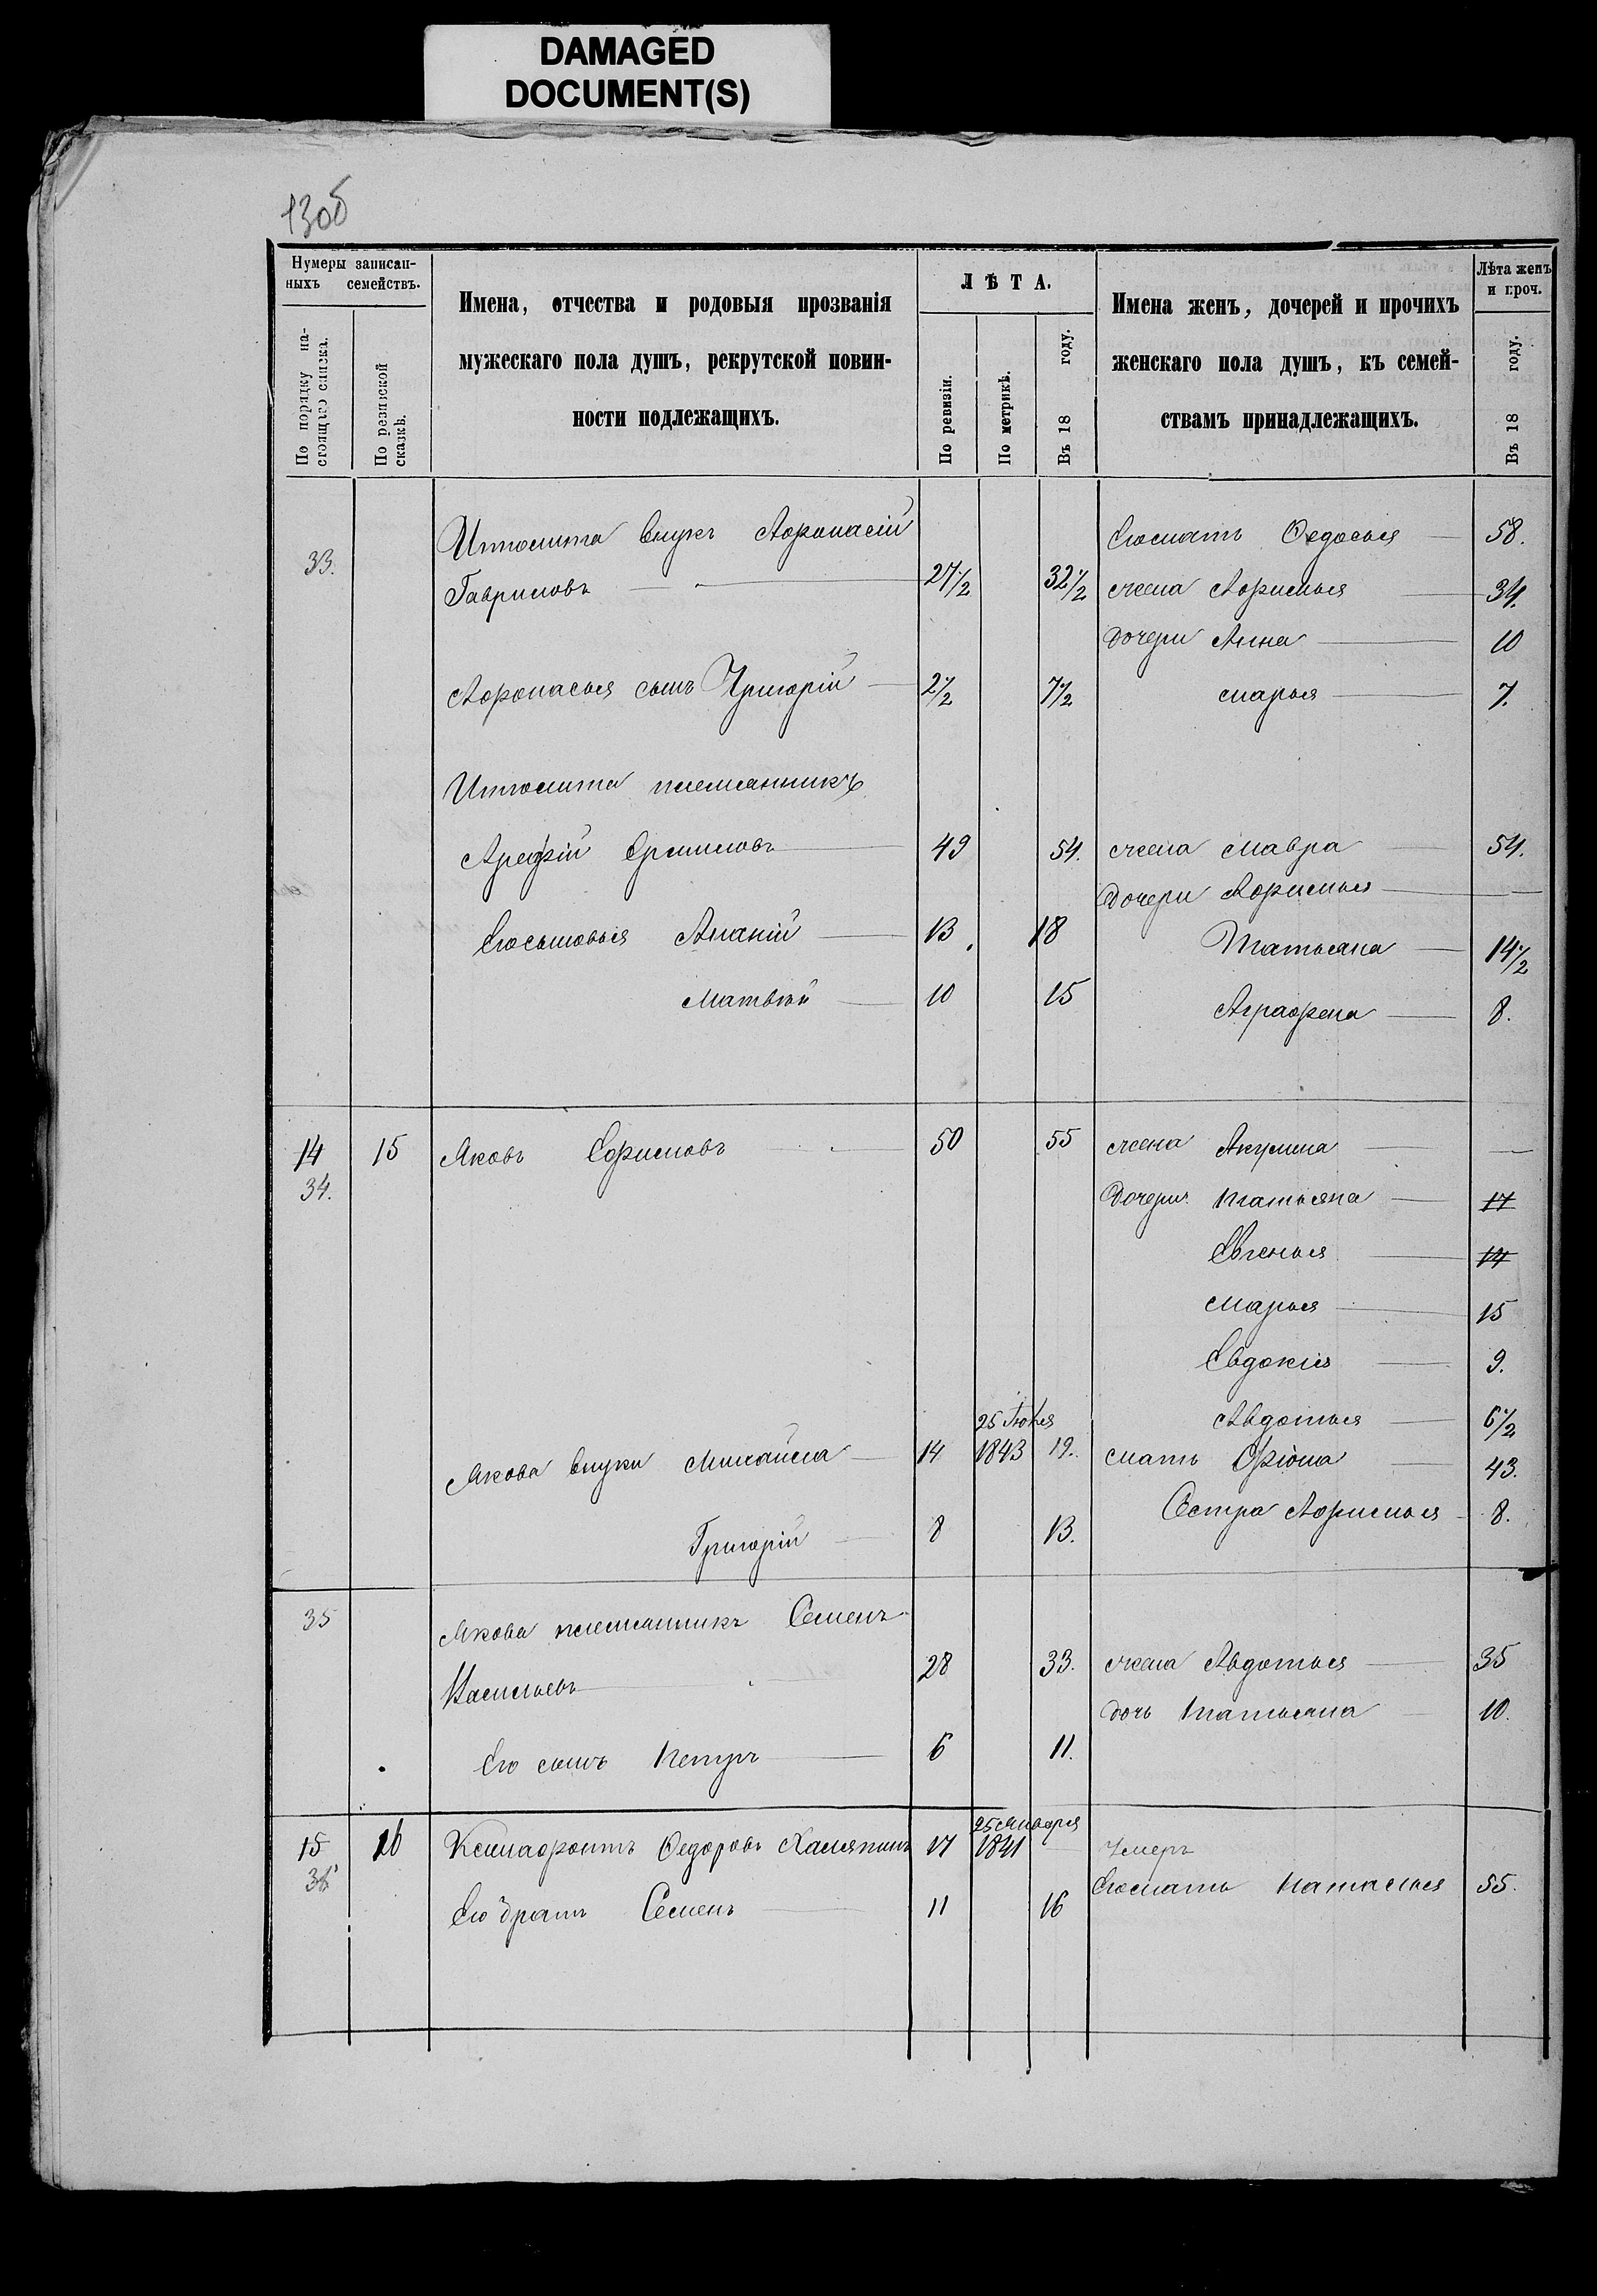 DAMAGED
DOCUMENT(S)
130б
Нумеры записан-
ныхъ семействъ.
По порядку на-
стоящаго списка.
По ревизской
сказкѣ.
Имена, отчества и родовыя прозванія
мужескаго пола душъ, рекрутской повин-
ности подлежащихъ.
ЛѢТА.
По ревизіи.
По метрикѣ.
Въ 18 году.
Имена женъ, дочерей и прочихъ
женскаго пола душъ, къ семей-
ствамъ принадлежащихъ.
Лѣта женъ
и проч.
Въ 18 году.
Иполита внукъ Афонасій Его мать Федосья 58.
33. Гавриловъ 27½ 32½ жена Афимья 34.
дочери Анна 10
Афонасья сынъ Григорій 2½ 7½ Марья 7.
Иполита племянникъ
Арефій Ермиловъ 49 54. жена Мавра 54.
Дочери Афимья —
Его сыновья Ананій 13. 18 Татьяна 14½
Матвѣй 10 15 Аграфена 8.
14 15 Яковъ Ефимовъ 50 55 жена Акулина —
34. Дочери Татьяна 17
Евгенья 14
Марья 15
Евдокія 9.
25 Іюля Авдотья 6½
Якова внуки Михайла 14 1843 19. мать Фіона 43.
Григорій 8 13. Сестра Афимья 8.
35 Якова племянникъ Семенъ
Васильевъ 28 33. жена Авдотья 35
дочь Татьяна 10.
Его сынъ Петръ 6 11.
25 Января
15 16 Ксенофонтъ Федоровъ 17 1841 Умеръ
36 Его братъ Семенъ 11 16 Его мать Наталья 55.